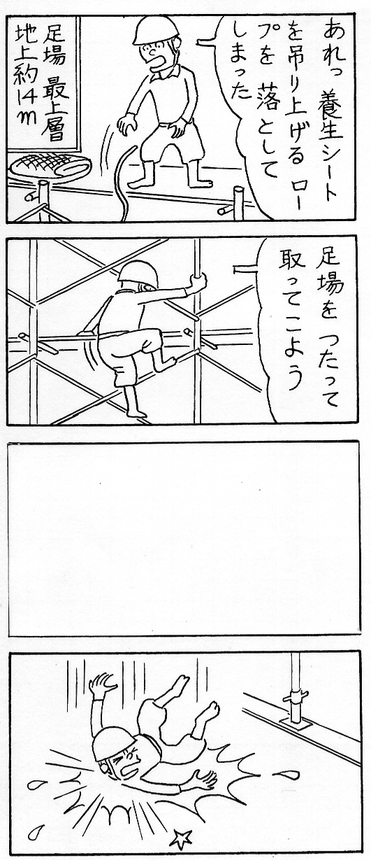 あれっ 養生シート
を吊り上げる ロー
プを 落として
しまった
足場 最上層
地上約14m
足場を つたって
取ってこよう